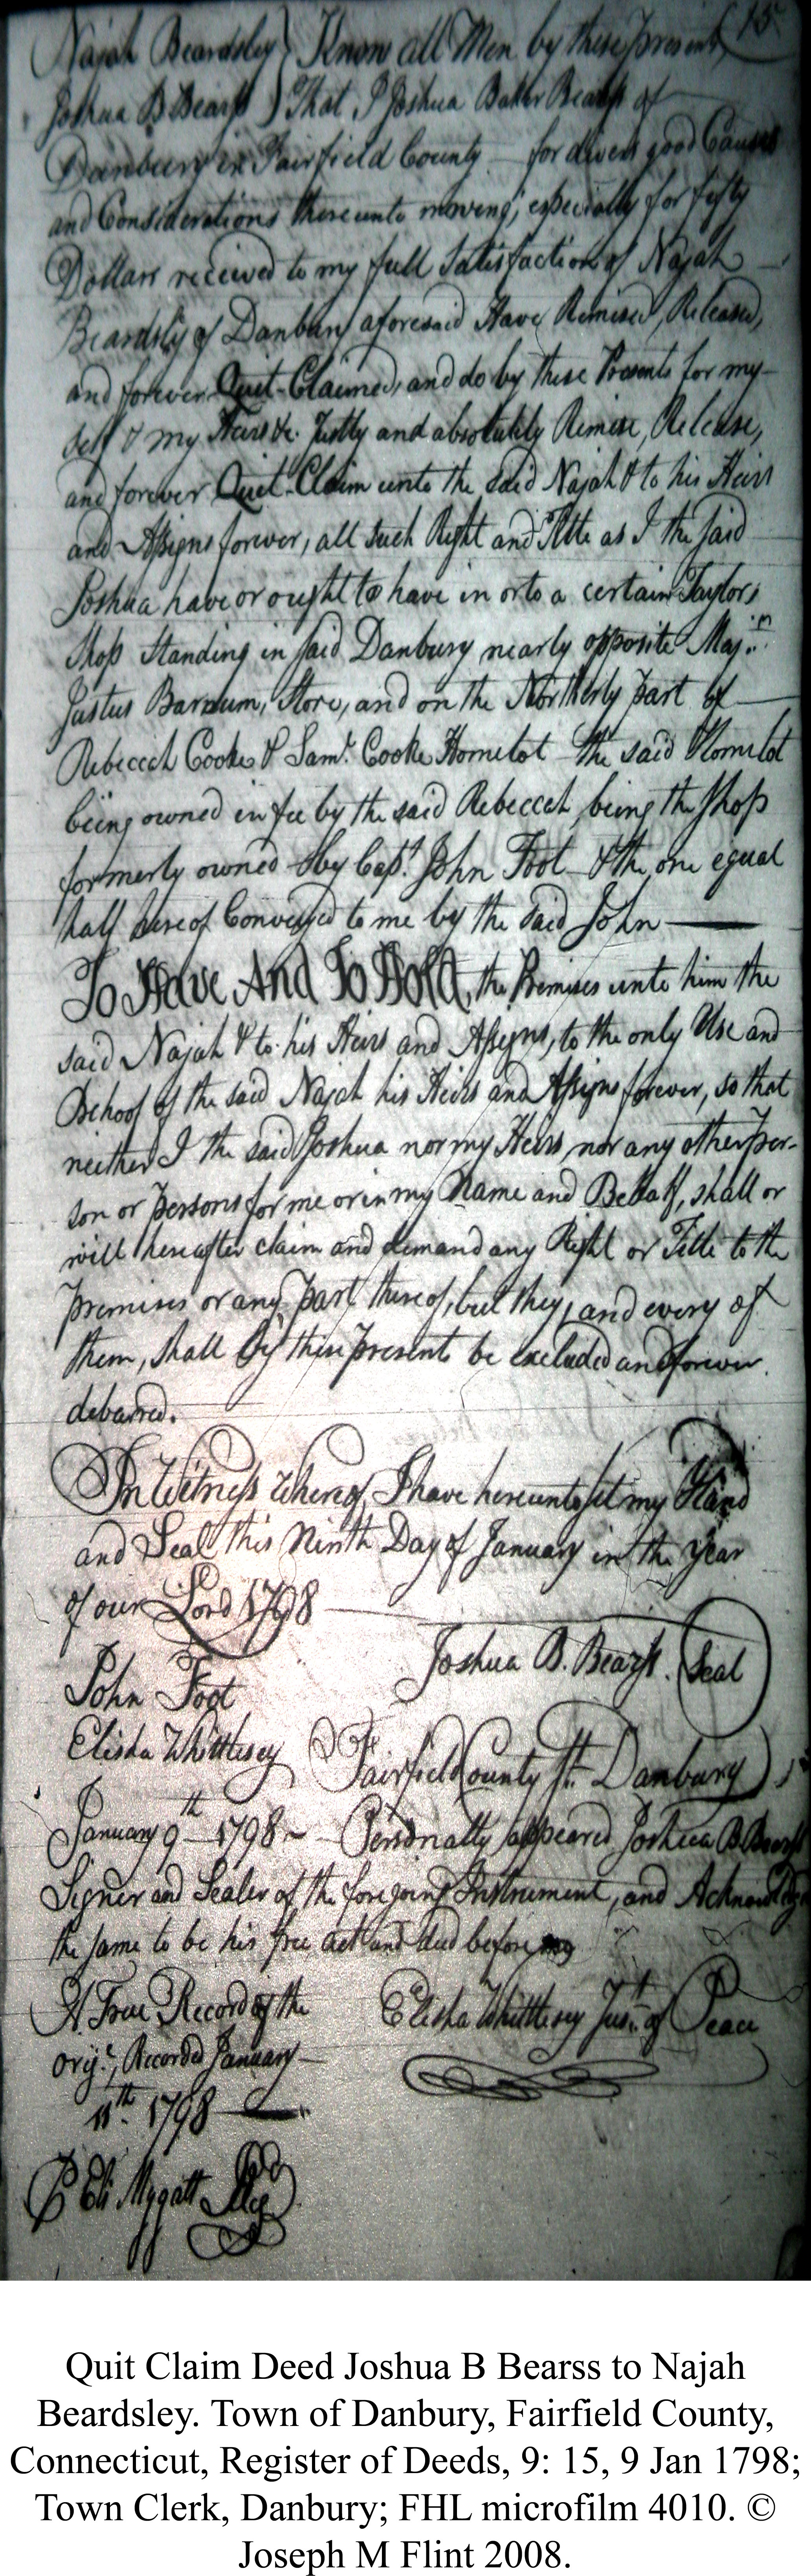 15
Najah Beardsley ) Know all Men by these Presents
Joshua B Bearss ) That I Joshua Baker Bearss of
Danbury in Fairfield County for divers good Causes
and Considerations thereunto moving, especially for fifty
Dollars received to my full Satisfaction of Najah
Beardsly of Danbury aforesaid Have Remised, Released,
and forever Quit-Claimed, and do by these Presents for my-
self & my Heirs &c. Justly and absolutely Remise, Release,
and forever Quit-Claim unto the said Najah & to his Heirs
and Assigns forever, all such Right and Title as I the said
Joshua have or ought to have in or to a certain Taylors
Shop Standing in said Danbury nearly opposite Maj.r
Justus Barnum, Store, and on the Northerly part of
Rebeccah Cooke & Sam.l Cooke Homelot the said Homelot
being owned in fee by the said Rebeccah, being the Shop
formerly owned by Cap.t John Foot & the one equal
half hereof Conveyed to me by the said John
To Have And To Hold, the Premises unto him the
said Najah & to his Heirs and Assigns, to the only Use and
Behoof of the said Najah his Heirs and Assigns forever, so that
neither I the said Joshua nor my Heirs, nor any other per-
son or persons for me or in my Name and Behalf, shall or
will hereafter claim and demand any Right or Title to the
premises or any part thereof, but they, and every of
them, shall By these presents be excluded and forever
debarred.
In Witness Whereof, I have hereunto set my Hand
and Seal this Ninth Day of January in the Year
of our Lord 1798
Joshua B. Bearss. Seal
John Foot
Elisha Whittlesey Fairfield County Ss. Danbury
January 9th 1798 Personally appeared Joshua B Bearss
Signer and Sealer of the foregoing Instrument, and Acknowledg
the same to be his free act and deed before me
A True Record of the Elisha Whittlesey Just. of Peace
orig.l, Recorded January
11th 1798
P Eli Mygatt Reg
Quit Claim Deed Joshua B Bearss to Najah
Beardsley. Town of Danbury, Fairfield County,
Connecticut, Register of Deeds, 9: 15, 9 Jan 1798;
Town Clerk, Danbury; FHL microfilm 4010. ©
Joseph M Flint 2008.